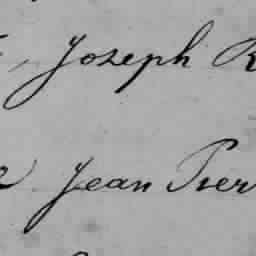 Joseph
Jean Pier